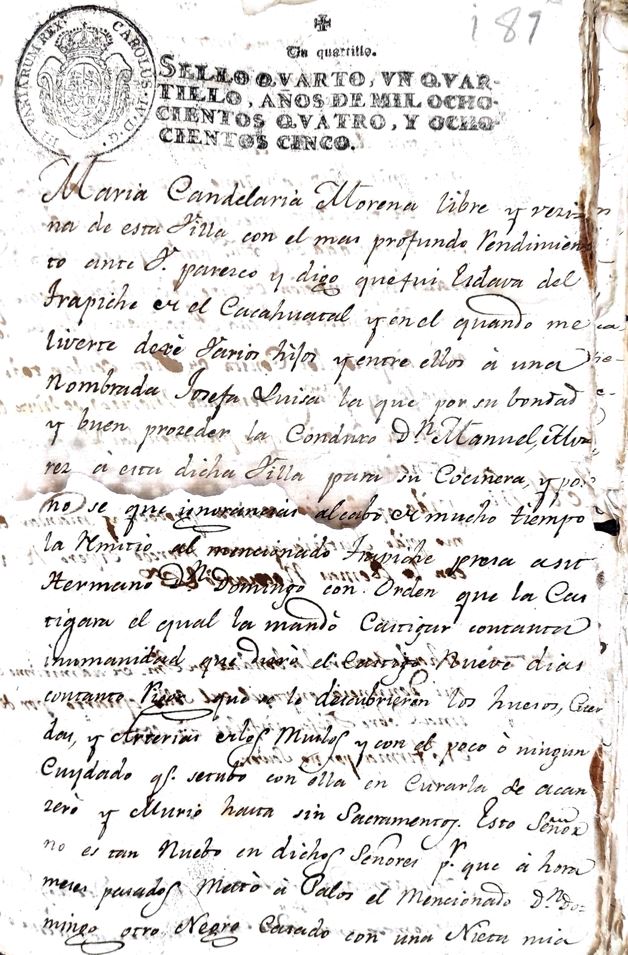 187
Un quartillo.
SELLO QVARTO, VN QVAR-
TILLO, AÑOS DE MIL OCHO-
CIENTOS QVATRO, Y OCHO
CIENTOS CINCO.
CAROLUS IV D. G. HISPANIARUM REX
Maria Candelaria Morena libre y vezi-
na de esta Villa con el mas profundo Rendimien-
to ante V. paresco y digo que fui Esclava del
Trapiche de el Cacahuatal y en el quando me
liverte dexè Varios hijos y entre ellos à una
Nombrada Josefa Luisa la que por su bondad
y buen prozeder la Condujo Dn. Manuel Alva-
rez à esta dicha Villa para su Cocinera, y por
no se que ignorancias al cabo de mucho tiempo
la Rmitio al mencionado Trapiche presa a su
Hermano Dn. Domingo con Orden que la Cas
tigara el qual la mandò Castigar con tanta
inumanidad que durò el Castigo Nueve dias
con tanto Rigor que se le descubrieron los huesos, Cuer
das, y Arterias de los Muslos y con el poco ò ningun
Cuydado qe. se tubo con ella en Curarla se acan
zerò y Murio hasta sin Sacramentos. Esto Señor
no es tan Nuebo en dichos Señores pr. que à hora
meses pasados Matò à Palos el Mencionado Dn. Do-
mingo otro Negro Casado con una Nieta mia